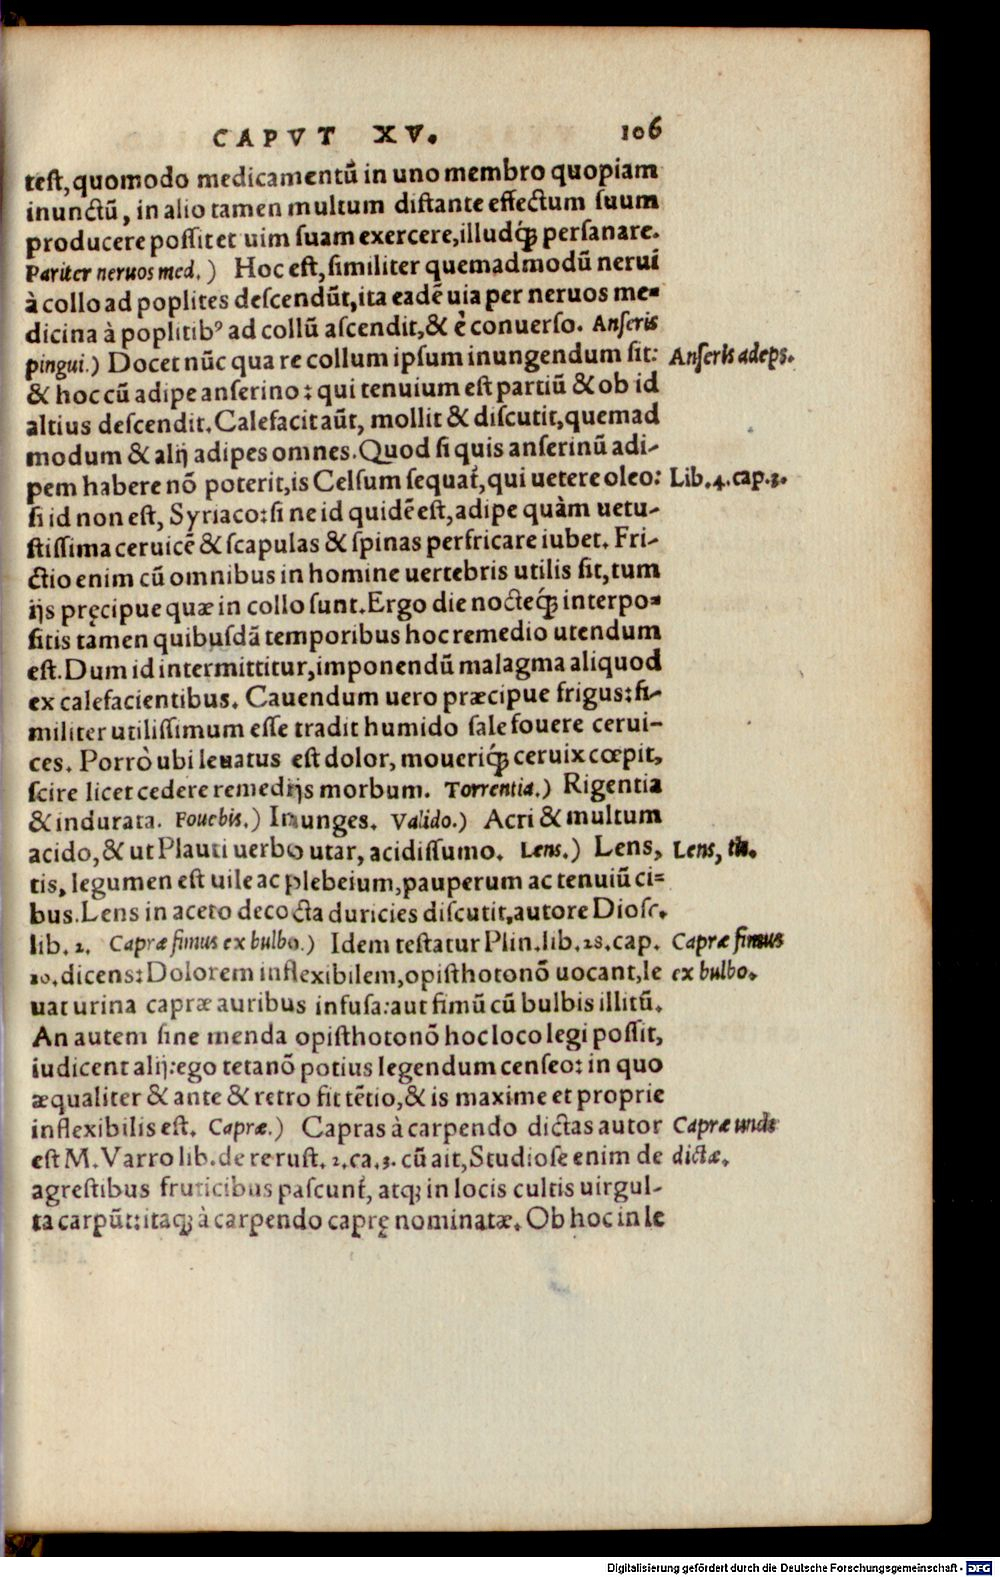 CAPVT XV. 106
test, quomodo medicamentũ in uno membro quopiam
inunctũ, in alio tamen multum distante effectum suum
producere possit et uim suam exercere, illudq́; persanare.
Pariter neruos med.) Hoc est, similiter quemadmodũ nerui
à collo ad poplites descendũt, ita eadẽ uia per neruos me-
dicina à poplitibꝰ ad collũ ascendit, & è conuerso. Anseris
pingui.) Docet nũc qua re collum ipsum inungendum sit: Anseris adeps.
& hoc cũ adipe anserino: qui tenuium est partiũ & ob id
altius descendit. Calefacit aũt, mollit & discutit, quemad
modum & alij adipes omnes. Quod si quis anserinũ adi-
pem habere nõ poterit, is Celsum sequat᷑, qui uetere oleo: Lib. 4. cap. 3.
si id non est, Syriaco: si ne id quidẽ est, adipe quàm uetu-
stissima ceruicẽ & scapulas & spinas perfricare iubet. Fri-
ctio enim cũ omnibus in homine uertebris utilis sit, tum
ijs pręcipue quæ in collo sunt. Ergo die nocteq́; interpo-
sitis tamen quibusdã temporibus hoc remedio utendum
est. Dum id intermittitur, imponendũ malagma aliquod
ex calefacientibus. Cauendum uero præcipue frigus: si-
militer utilissimum esse tradit humido sale fouere cerui-
ces. Porrò ubi leuatus est dolor, moueriq́; ceruix cœpit,
scire licet cedere remedijs morbum. Torrentia.) Rigentia
& indurata. Fouebis.) Inunges. Valido.) Acri & multum
acido, & ut Plauti uerbo utar, acidissumo. Lens.) Lens, Lens, tis.
tis, legumen est uile ac plebeium, pauperum ac tenuiũ ci-
bus. Lens in aceto decocta duricies discutit, autore Diosc.
lib. 2. Capræ fimus ex bulbo.) Idem testatur Plin. lib. 28. cap. Capræ fimus
20. dicens: Dolorem inflexibilem, opisthotonõ uocant, le ex bulbo.
uat urina capræ auribus infusa: aut fimũ cũ bulbis illitũ.
An autem sine menda opisthotonõ hoc loco legi possit,
iudicent alij: ego tetanõ potius legendum censeo: in quo
æqualiter & ante & retro fit tẽtio, & is maxime et proprie
inflexibilis est. Capræ.) Capras à carpendo dictas autor Capræ unde
est M. Varro lib. de re rust. 2. ca. 3. cũ ait, Studiose enim de dictæ.
agrestibus fruticibus pascunt᷑, atq; in locis cultis uirgul-
ta carpũt: itaq; à carpendo caprę nominatæ. Ob hoc in le
Digitalisierung gefördert durch die Deutsche Forschungsgemeinschaft - DFG